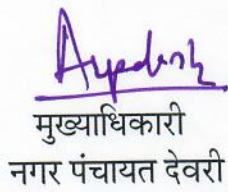 मुख्याधिकारी
नगर पंचायत देवरी